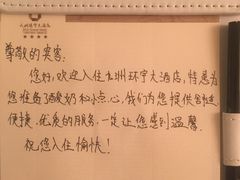 尊敬的宾客:
您好,欢迎入住九洲环宇大酒店,特意为
您准备了酸奶和小点心,我们为您提供
便捷、优质的服务,一定让您感到温馨
祝您入住愉快!